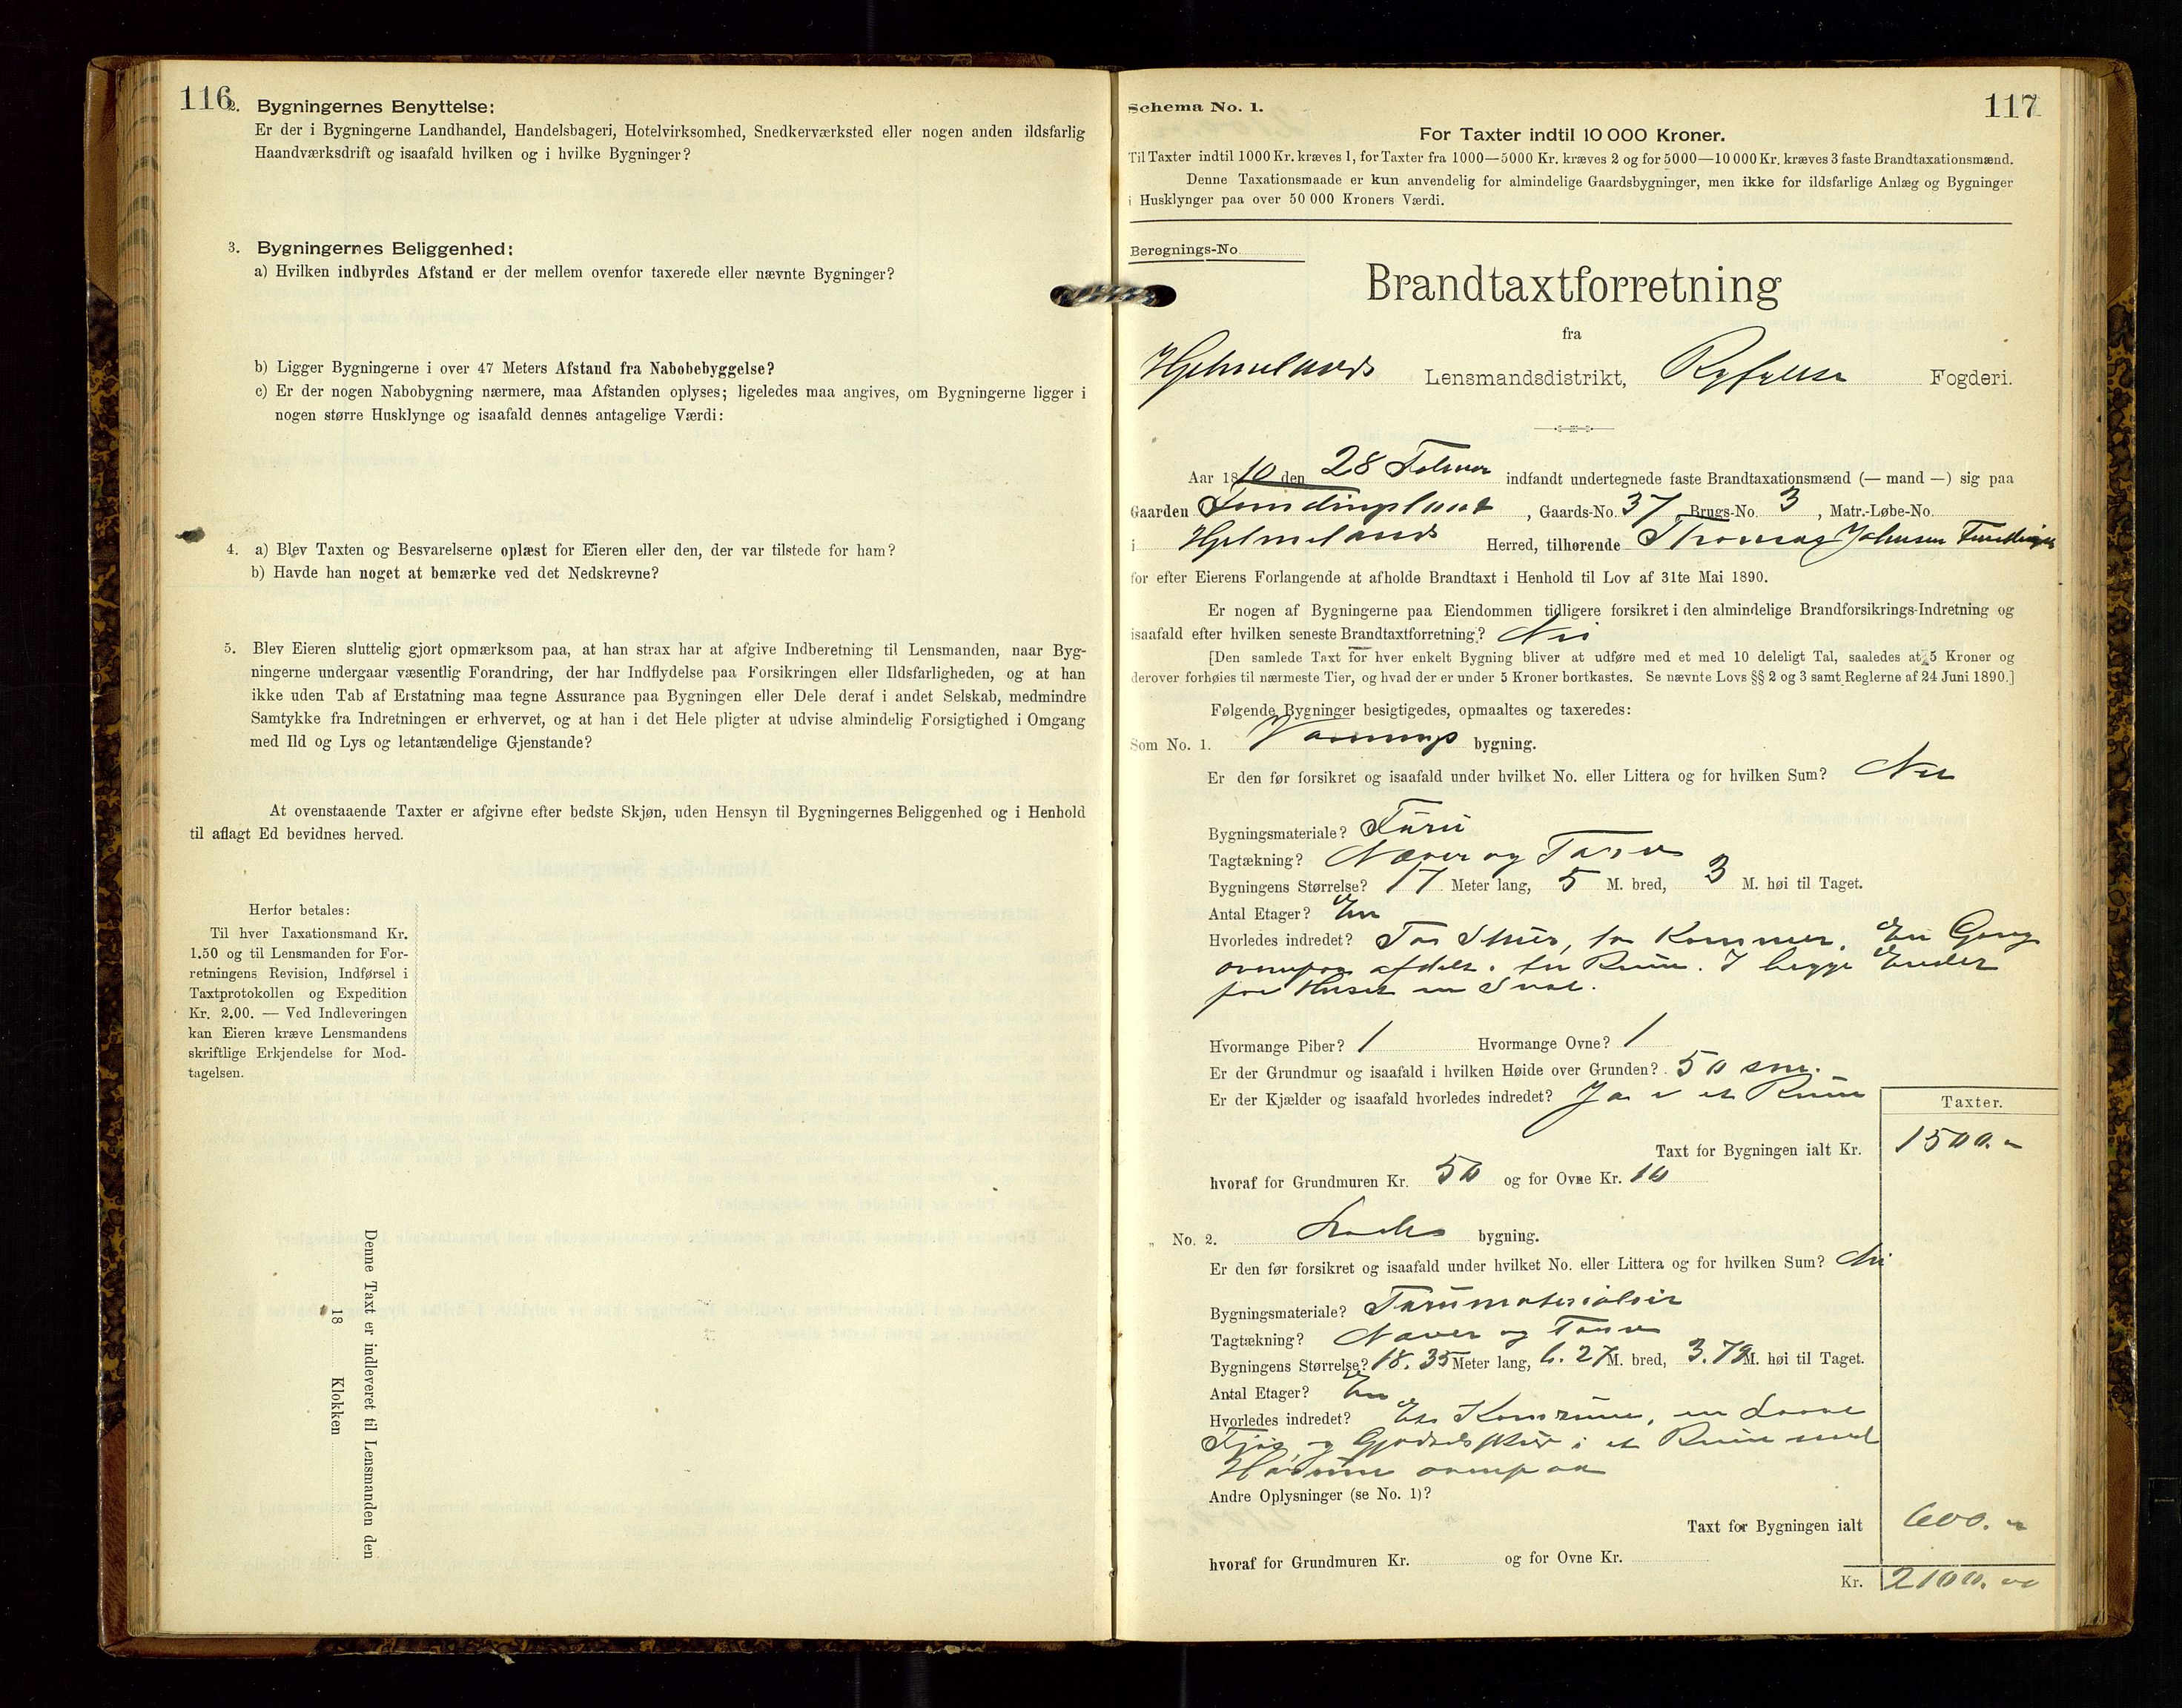 116
2. Bygningernes Benyttelse:
Er der i Bygningerne Landhandel, Handelsbageri, Hotelvirksomhed, Snedkerværksted eller nogen anden ildsfarlig
Haandværksdrift og isaafald hvilken og i hvilke Bygninger?
3. Bygningernes Beliggenhed:
a) Hvilken indbyrdes Afstand er der mellem ovenfor taxerede eller nævnte Bygninger?
b) Ligger Bygningerne i over 47 Meters Afstand fra Nabobebyggelse?
c) Er der nogen Nabobygning nærmere, maa Afstanden oplyses; ligeledes maa angives, om Bygningerne ligger i
nogen større Husklynge og isaafald dennes antagelige Værdi:
4. a) Blev Taxten og Besvarelserne oplæst for Eieren eller den, der var tilstede for ham?
b) Havde han noget at bemærke ved det Nedskrevne?
5. Blev Eieren sluttelig gjort opmærksom paa, at han strax har at afgive Indberetning til Lensmanden, naar Byg-
ningerne undergaar væsentlig Forandring, der har Indflydelse paa Forsikringen eller Ildsfarligheden, og at han
ikke uden Tab af Erstatning maa tegne Assurance paa Bygningen eller Dele deraf i andet Selskab, medmindre
Samtykke fra Indretningen er erhvervet, og at han i det Hele pligter at udvise almindelig Forsigtighed i Omgang
med Ild og Lys og letantændelige Gjenstande?
At ovenstaaende Taxter er afgivne efter bedste Skjøn, uden Hensyn til Bygningernes Beliggenhed og i Henhold
til aflagt Ed bevidnes herved.
Herfor betales:
Til hver Taxationsmand Kr.
1.50 og til Lensmanden for For-
retningens Revision, Indførsel i
Taxtprotokollen og Expedition
Kr. 2.00. — Ved Indleveringen
kan Eieren kræve Lensmandens
skriftlige Erkjendelse for Mod-
tagelsen.
Denne Taxt er indleveret til Lensmanden den
18 Klokken
117
Schema No. 1.
For Taxter indtil 10 000 Kroner.
Til Taxter indtil 1000 Kr. kræves 1, for Taxter fra 1000—5000 Kr. kræves 2 og for 5000—10 000 Kr. kræves 3 faste Brandtaxationsmænd.
Denne Taxationsmaade er kun anvendelig for almindelige Gaardsbygninger, men ikke for ildsfarlige Anlæg og Bygninger
i Husklynger paa over 50 000 Kroners Værdi.
Beregnings-No
Brandtaxtforretning
fra
Hjelmelands Lensmandsdistrikt, Ryfylke Fogderi.
Aar 1810 den 28 indfandt undertegnede faste Brandtaxationsmænd (— mand —) sig paa
Gaarden Fundingsland, Gaards-No. 37 Brugs-No. 3, Matr.-Løbe-No.
i Hjelmelands Herred, tilhørende Thomas Johnsen
for efter Eierens Forlangende at afholde Brandtaxt i Henhold til Lov af 31te Mai 1890.
Er nogen af Bygningerne paa Eiendommen tidligere forsikret i den almindelige Brandforsikrings-Indretning og
isaafald efter hvilken seneste Brandtaxtforretning? Nei
[Den samlede Taxt for hver enkelt Bygning bliver at udføre med et med 10 deleligt Tal, saaledes at 5 Kroner og
derover forhøies til nærmeste Tier, og hvad der er under 5 Kroner bortkastes. Se nævnte Lovs §§ 2 og 3 samt Reglerne af 24 Juni 1890.]
Følgende Bygninger besigtigedes, opmaaltes og taxeredes:
Som No. 1. Vaanings bygning.
Er den før forsikret og isaafald under hvilket No. eller Littera og for hvilken Sum? Nei
Bygningsmateriale? Furu
Tagtækning? Næver og Torv
Bygningens Størrelse? 17 Meter lang, 5 M. bred, 3 M. høi til Taget.
Antal Etager? En
Hvorledes indredet? To Stuer, to Kammer. En Gang
ovenpaa afdelt. Rum. I begge Ender
for Huset en Sval.
Hvormange Piber? 1 Hvormange Ovne? 1
Er der Grundmur og isaafald i hvilken Høide over Grunden? 50 sm.
Er der Kjælder og isaafald hvorledes indredet? Ja i et Rum
Taxter.
Taxt for Bygningen ialt Kr. 1500.-
hvoraf for Grundmuren Kr. 50 og for Ovne Kr. 10
„ No. 2. Lade bygning.
Er den før forsikret og isaafald under hvilket No. eller Littera og for hvilken Sum? Nei
Bygningsmateriale? Furumaterialier
Tagtækning? Næver og Torv
Bygningens Størrelse? 18.35 Meter lang, 6.27 M. bred, 3.79 M. høi til Taget.
Antal Etager? En
Hvorledes indredet? Et Kornrum, en Laave
Fjøs og Gjødselskur i et Rum med
Hørum ovenpaa
Andre Oplysninger (se No. 1)?
Taxt for Bygningen ialt 600.-
hvoraf for Grundmuren Kr. og for Ovne Kr.
Kr. 2100.00